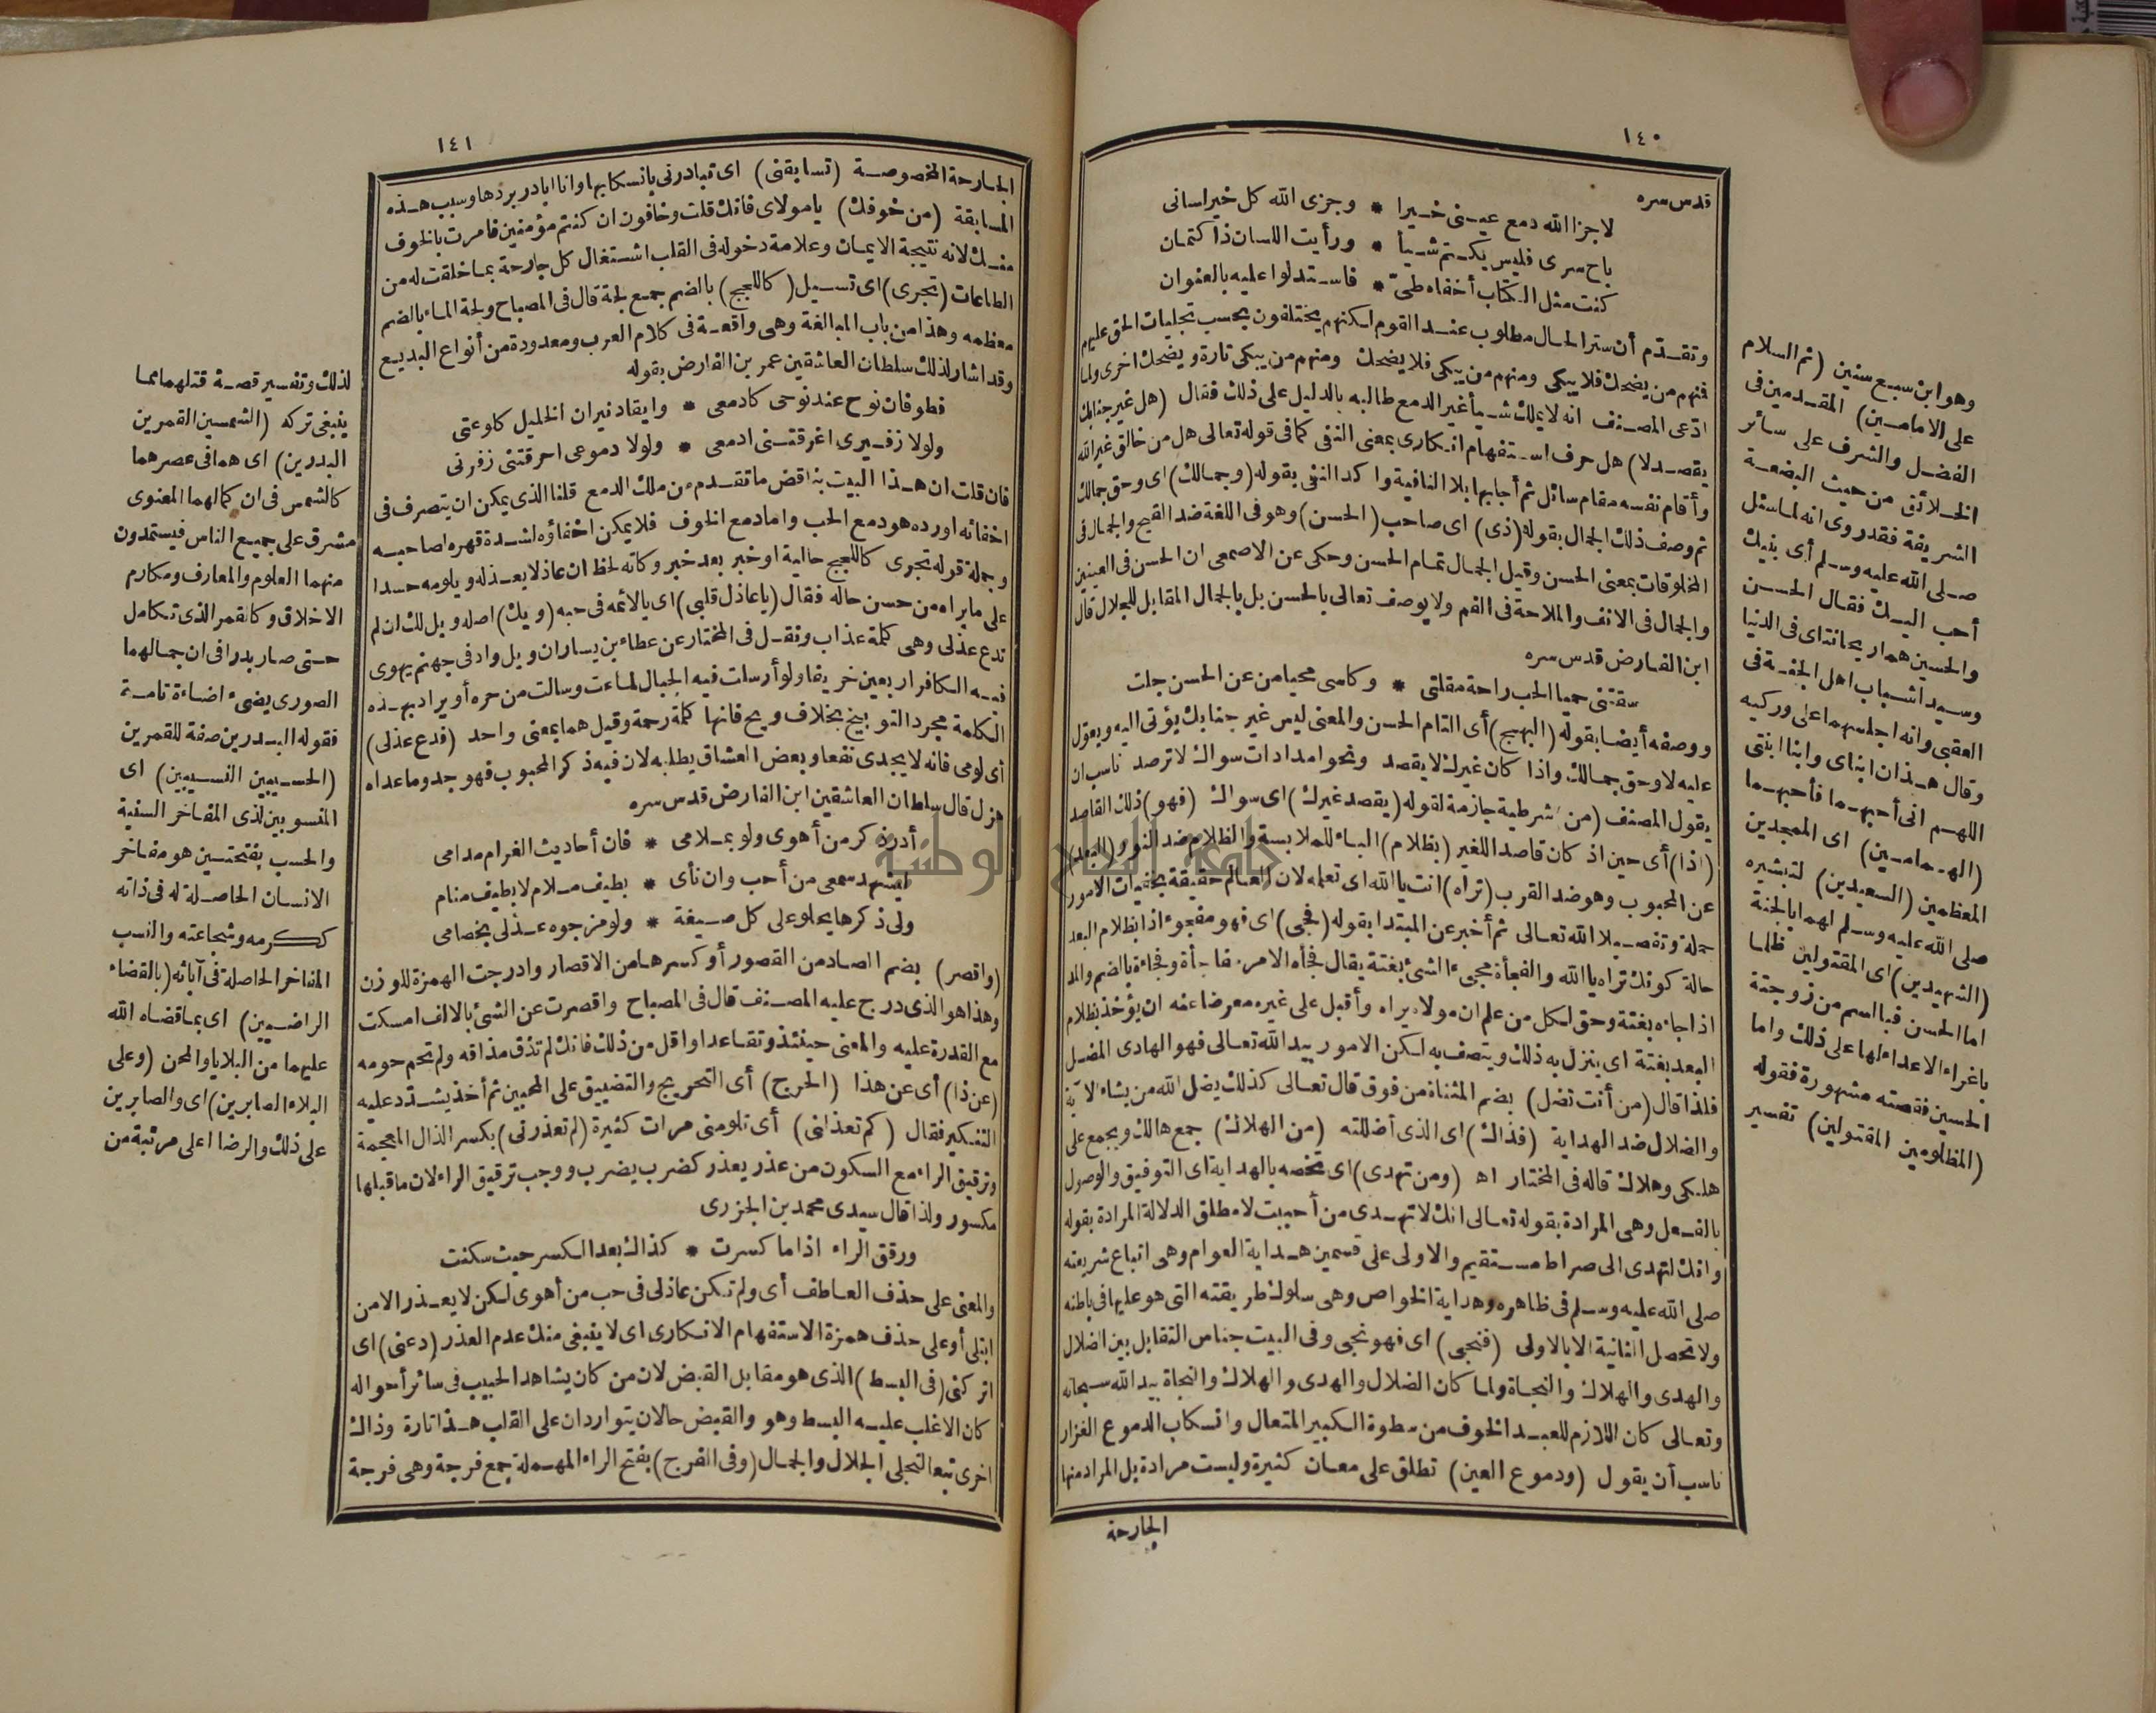 ١٤٠
قدس سره
لا جزا الله دمع عيني خيرا * وجزى الله كل خير لساني
باح سرى فليس يكتم شيأ * ورأيت اللسان ذا كتمان
كنت مثل الكتاب أخفاه طىّ * فاستدلوا عليه بالعنوان
وتقدّم أن ستر الحال مطلوب عند القوم لكنهم يختلفون بحسب تجليات الحق عليهم
فمنهم من يضحك فلا يبكى ومنهم من يبكى فلا يضحك ومنهم من يبكى تارة ويضحك اخرى ولما
ادّعى المصنف انه لا يملك شيأ غير الدمع طالبه بالدليل على ذلك فقال (هل غير جنابك
يقصد لا) هل حرف استفهام انكارى بمعنى النفى كما فى قوله تعالى هل من خالق غير الله
وأقام نفسه مقام سائل ثم أجابها بلا النافية واكد النفى بقوله (وجمالك) اى وحق جمالك
ثم وصف ذلك الجمال بقوله (ذى) اى صاحب (الحسن) وهو فى اللغة ضد القبيح والجمال فى
المخلوقات بمعنى الحسن وقيل الجمال تمام الحسن وحكى عن الاصمعى ان الحسن فى العينين
والجمال فى الانف والملاحة فى الفم ولا يوصف تعالى بالحسن بل بالجمال المقابل للجلال قال
ابن الفارض قدس سره
سقتنى حميا الحب راحة مقلتى * وكاسى محيا من عن الحسن جلت
ووصفه أيضا بقوله (البهيج) أى التام الحسن والمعنى ليس غير جنابك يؤتى اليه ويعوّل
عليه لا وحق جمالك واذا كان غيرك لا يقصد ونحو امدادات سواك لا ترصد ناسب ان
يقول المصنف (من) شرطية جازمة لقوله (يقصد غيرك) اى سواك (فهو) ذلك القاصد
(اذا) أى حين اذ كان قاصد اللغير (بظلام) الباء للملابسة والظلام ضد النور و(البعد)
عن المحبوب وهو ضد القرب (تراه) انت يا الله اى تعلمه لان العالم حقيقة بخفيات الامور
جملة وتفصيلا الله تعالى ثم أخبر عن المبتدا بقوله (فجى) اى فهو مفجوء اذا بظلام البعد
حالة كونك تراه يا الله والفجأة مجىء الشئ بغتة يقال فجأه الامر مفاجأة وفجاءة بالضم والمد
اذا جاءه بغتة وحق لكل من علم ان مولاه يراه وأقبل على غيره معرضا عنه ان يؤخذ بظلام
البعد بغتة اى ينزل به ذلك ويتصف به لكن الامور بيد الله تعالى فهو الهادى المضل
فلذا قال (من أنت تضل) بضم المثناة من فوق قال تعالى كذلك يضل الله من يشاء الآية
والضلال ضد الهداية (فذاك) اى الذى أضللته (من الهلاك) جمع هالك ويجمع على
هلكى وهلاك قاله فى المختار اه (ومن تهدى) اى تخصه بالهداية اى التوفيق والوصول
بالفعل وهى المرادة بقوله تعالى انك لا تهدى من أحببت لا مطلق الدلالة المرادة بقوله
وانك لتهدى الى صراط مستقيم والاولى على قسمين هداية العوام وهى اتباع شريعته
صلى الله عليه وسلم فى ظاهره وهداية الخواص وهى سلوك طريقته التى هو عليها فى باطنه
ولا تحصل الثانية الا بالاولى (فنجى) اى فهو نجى وفى البيت جناس التقابل بين الضلال
والهدى والهلاك والنجاة ولما كان الضلال والهدى والهلاك والنجاة بيد الله سبحانه
وتعالى كان اللازم للعبد الخوف من سطوة الكبير المتعال وانسكاب الدموع الغزار
ناسب أن يقول (ودموع العين) تطلق على معان كثيرة وليست مرادة بل المراد منها
الجارحة
وهو ابن سبع سنين (ثم السلام
على الامامين) المقدمين فى
الفضل والشرف على سائر
الخلائق من حيث البضعة
الشريفة فقد روى انه لما سئل
صلى الله عليه وسلم أى بنيك
أحب اليك فقال الحسن
والحسين هما ريحانتاى فى الدنيا
وسيدا شباب اهل الجنة فى
العقبى وانه اجلسهما على وركيه
وقال هذان ابناى وابنا ابنتى
اللهم انى أحبهما فأحبهما
(الهمامين) اى الممجدين
المعظمين (السعيدين) لتبشيره
صلى الله عليه وسلم لهما بالجنة
(الشهيدين) اى المقتولين ظلما
اما الحسن فبالسم من زوجته
باغراء الاعداء لها على ذلك واما
الحسين فقصته مشهورة فقوله
(المظلومين المقتولين) تفسير
١٤١
الجارحة المخصوصة (تسابقنى) اى تبادرنى بانسكابها وانا ابادر بردها وسبب هذه
المسابقة (من خوفك) يا مولاى فانك قلت وخافون ان كنتم مؤمنين فامرت بالخوف
منك لانه نتيجة الايمان وعلامة دخوله فى القلب اشتغال كل جارحة بما خلقت له من
الطاعات (تجرى) اى تسيل (كاللجج) بالضم جمع لجة قال فى المصباح ولجة الماء بالضم
معظمه وهذا من باب المبالغة وهى واقعة فى كلام العرب ومعدودة من أنواع البديع
وقد اشار لذلك سلطان العاشقين عمر بن الفارض بقوله
فطوفان نوح عند نوحى كادمعى * وايقاد نيران الخليل كلوعتى
ولولا زفيرى اغرقتنى ادمعى * ولولا دموعى احرقتنى زفرتى
فان قلت ان هذا البيت يناقض ما تقدم من ملك الدمع قلنا الذى يمكن ان يتصرف فى
اخفائه اورده هو دمع الحب واما دمع الخوف فلا يمكن اخفاؤه لشدة قهره لصاحبه
وجملة قوله تجرى كاللجج حالية او خبر بعد خبر وكأنه لحظ ان عاذلا يعذله ويلومه حسدا
على ما يراه من حسن حاله فقال (يا عاذل قلبى) اى يا لائمه فى حبه (ويك) اصله ويل لك ان لم
تدع عذلى وهى كلمة عذاب ونقل فى المختار عن عطاء بن يسار ان ويل واد فى جهنم يهوى
فيه الكافر اربعين خريفا ولو أرسلت فيه الجبال لماعت وسالت من حره أو يراد بهذه
الكلمة مجرد التوبيخ بخلاف ويح فانها كلمة رحمة وقيل هما بمعنى واحد (فدع عذلى)
أى لومى فانه لا يجدى نفعا وبعض العشاق يطلبه لان فيه ذكر المحبوب فهو جد وما عداه
هزل قال سلطان العاشقين ابن الفارض قدس سره
أدر ذكر من أهوى ولو بملامى * فان أحاديث الغرام مدامى
ليشهد سمعى من أحب وان نأى * بطيف ملام لا بطيف منام
ولى ذكرها يحلو على كل صيغة * ولو مزجوه عذلى بخصامى
(واقصر) بضم الصاد من القصور أو كسرها من الاقصار وادرجت الهمزة للوزن
وهذا هو الذى درج عليه المصنف قال فى المصباح واقصرت عن الشئ بالالف امسكت
مع القدرة عليه والمعنى حينئذ وتقاعد او اقل من ذلك فانك لم تذق مذاقه ولم تحم حومه
(عن ذا) أى عن هذا (الحرج) أى التحريج والتضييق على المحبين ثم أخذ يشدد عليه
النكير فقال (كم تعذلنى) أى تلومنى مرات كثيرة (لم تعذرنى) بكسر الذال المعجمة
وترقيق الراء مع السكون من عذر يعذر كضرب يضرب ووجب ترقيق الراء لان ما قبلها
مكسور ولذا قال سيدى محمد بن الجزرى
ورقق الراء اذا ما كسرت * كذاك بعد الكسر حيث سكنت
والمعنى على حذف العاطف أى ولم تكن عاذلى فى حب من أهوى لكن لا يعذر الا من
ابتلى أو على حذف همزة الاستفهام الانكارى اى لا ينبغى منك عدم العذر (دعنى) اى
اتركنى (فى البسط) الذى هو مقابل القبض لان من كان يشاهد الحبيب فى سائر أحواله
كان الاغلب عليه البسط وهو والقبض حالان يتواردان على القلب هذا تارة وذاك
اخرى تبعا لتجلى الجلال والجمال (وفى الفرج) بفتح الراء المهملة جمع فرجة وهى فرجة
لذلك وتفسير قصة قتلهما مما
ينبغى تركه (الشمسين القمرين
البدرين) اى هما فى عصرهما
كالشمس فى ان كمالهما المعنوى
مشرق على جميع الناس فيستمدون
منهما العلوم والمعارف ومكارم
الاخلاق وكالقمر الذى تكامل
حتى صار بدرا فى ان جمالهما
الصورى يضىء اضاءة تامة
فقوله البدرين صفة للقمرين
(الحسيبين النسيبين) اى
المنسوبين لذى المفاخر السنية
والحسب بفتحتين هو مفاخر
الانسان الحاصلة له فى ذاته
ككرمه وشجاعته والنسب
المفاخر الحاصلة فى آبائه (بالقضاء
الراضيين) اى بما قضاه الله
عليهما من البلايا والمحن (وعلى
البلاء الصابرين) اى والصابرين
على ذلك والرضا اعلى مرتبة من
جامعة النجاح الوطنية